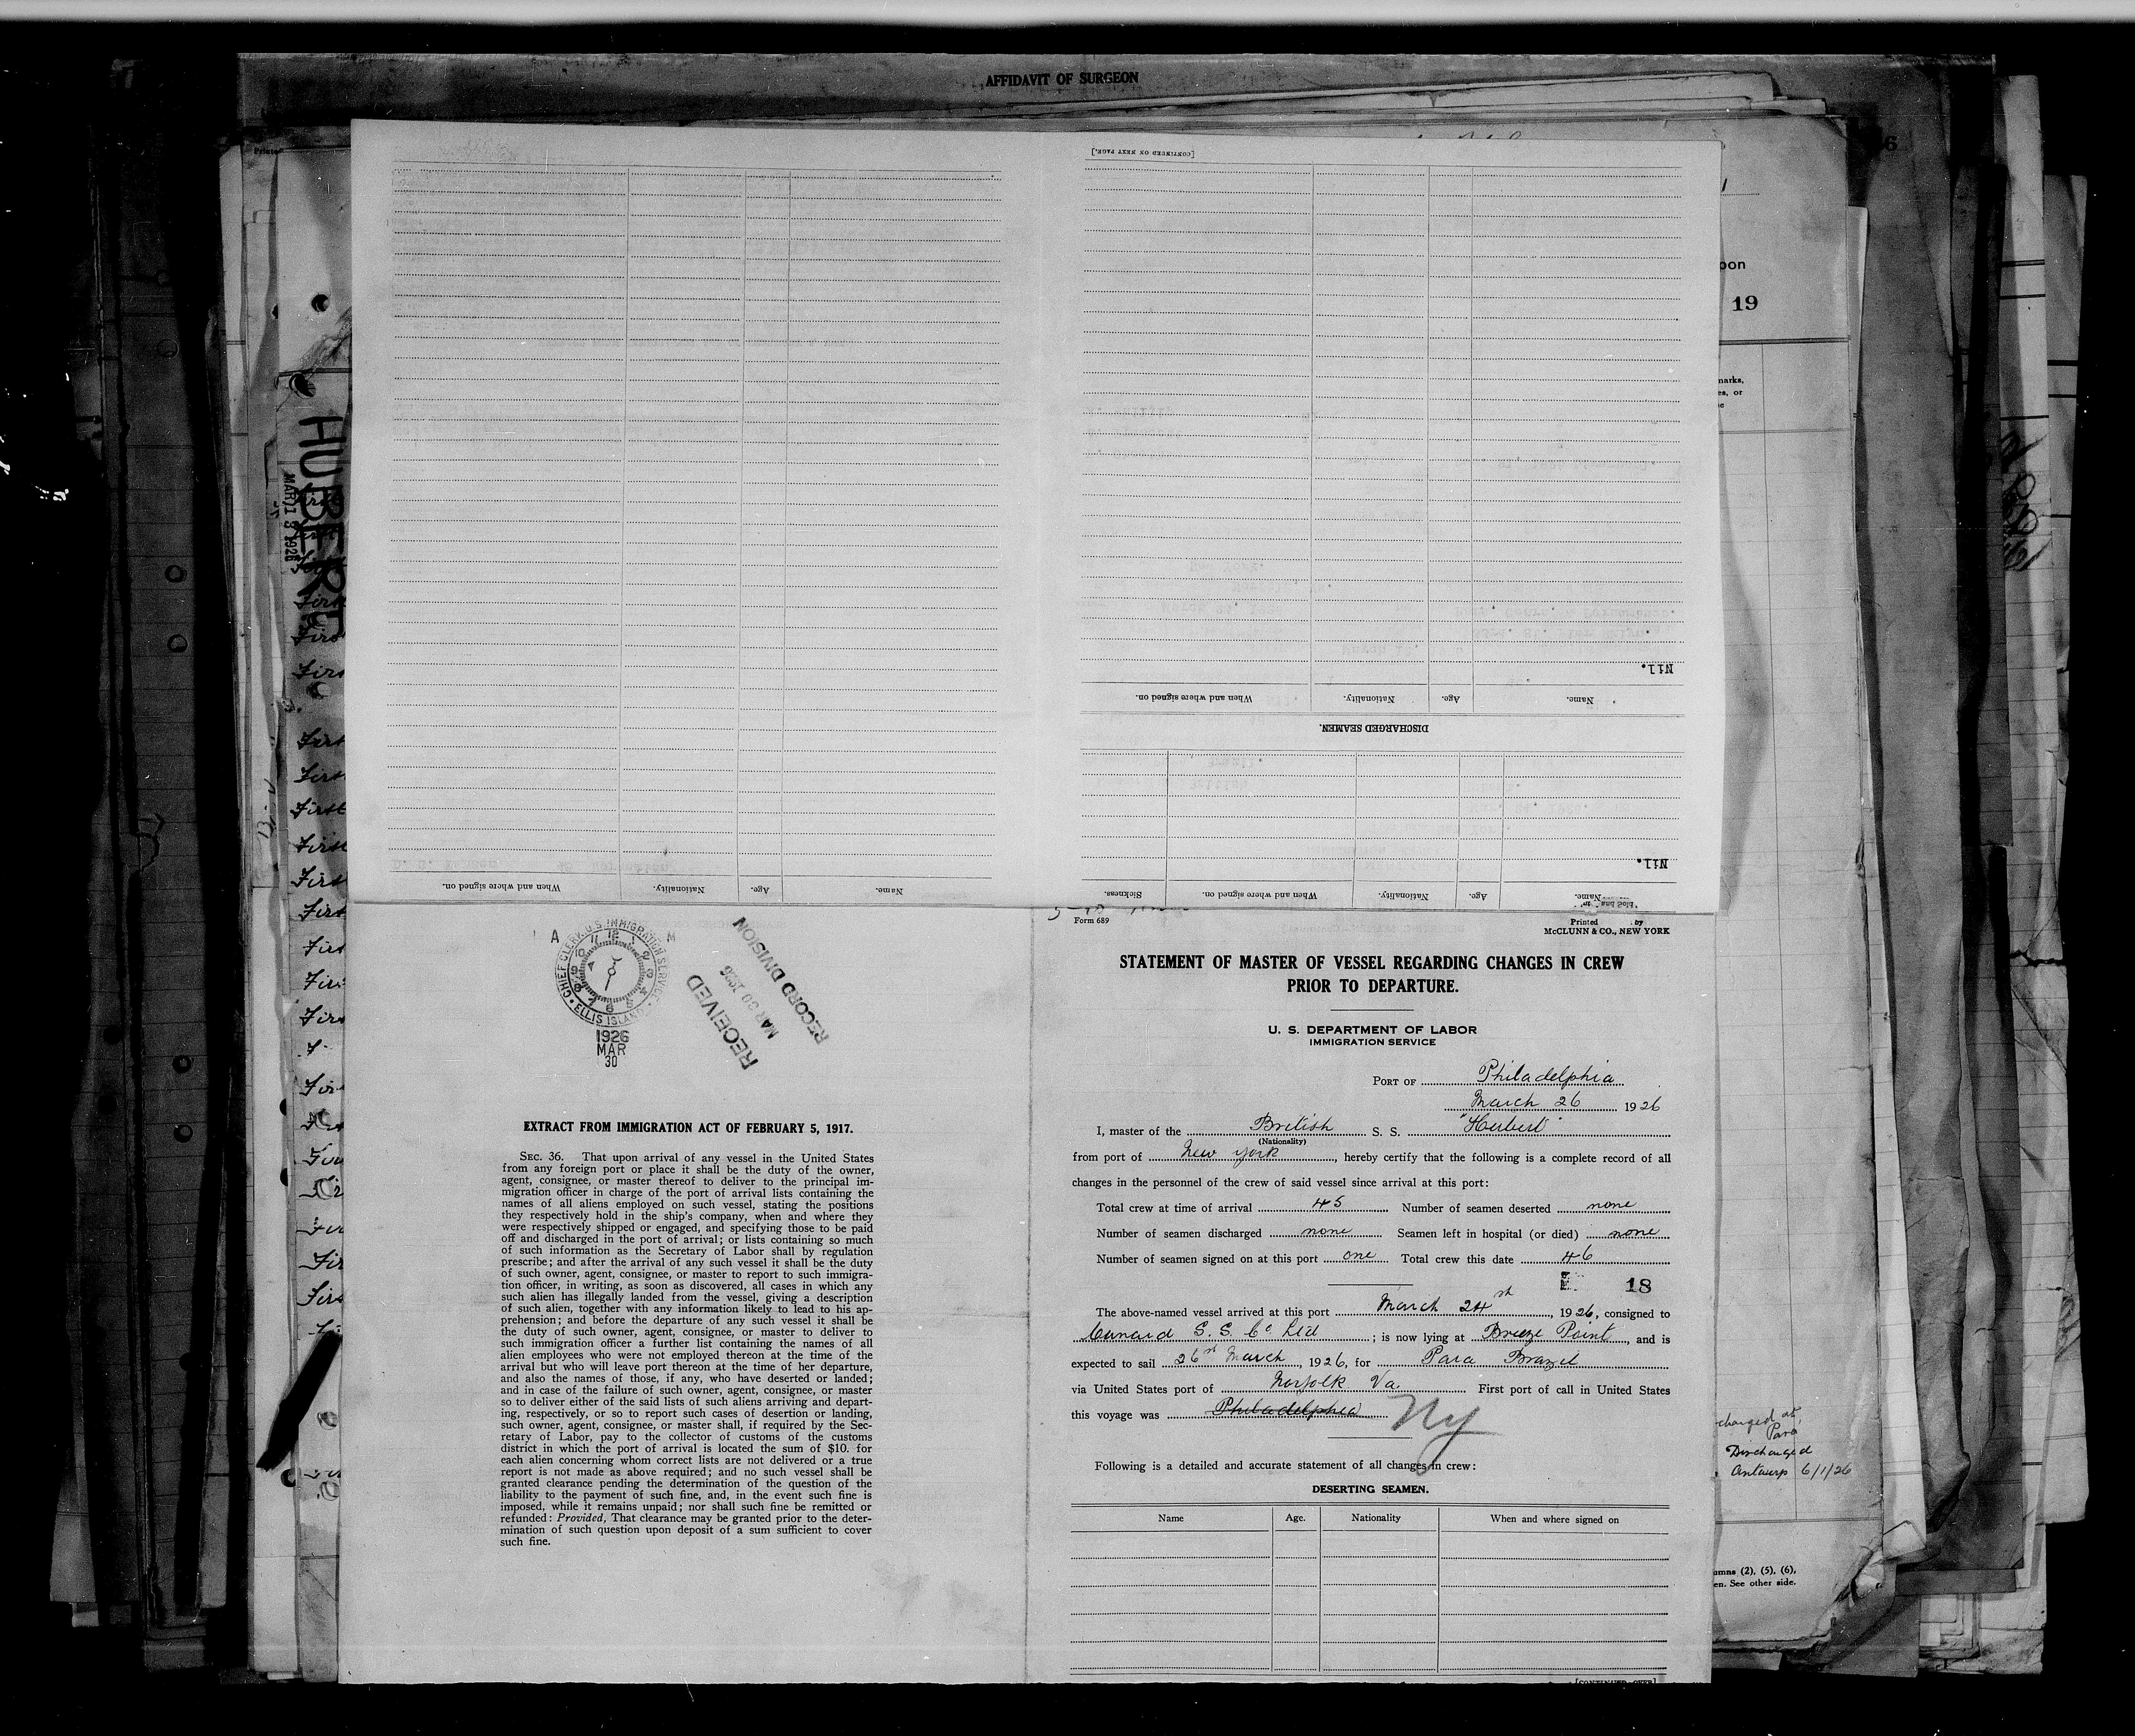 AFFIDAVIT OF SURGEON
[CONTINUED ON NEXT PAGE.]
Nil.
Name. Age. Nationality. When and where signed on.
DISCHARGED SEAMEN.
Nil.
Name. Age. Nationality. When and where signed on. Sickness.
Name. Age. Nationality. When and where signed on.
HUBERT
MAR 1926
19
A M
CHIEF CLERK U.S. IMMIGRATION SERVICE
ELLIS ISLAND
1926
MAR
30
RECEIVED
MAR 30 1926
RECORD DIVISION
EXTRACT FROM IMMIGRATION ACT OF FEBRUARY 5, 1917.
SEC. 36. That upon arrival of any vessel in the United States
from any foreign port or place it shall be the duty of the owner,
agent, consignee, or master thereof to deliver to the principal im-
migration officer in charge of the port of arrival lists containing the
names of all aliens employed on such vessel, stating the positions
they respectively hold in the ship's company, when and where they
were respectively shipped or engaged, and specifying those to be paid
off and discharged in the port of arrival; or lists containing so much
of such information as the Secretary of Labor shall by regulation
prescribe; and after the arrival of any such vessel it shall be the duty
of such owner, agent, consignee, or master to report to such immigra-
tion officer, in writing, as soon as discovered, all cases in which any
such alien has illegally landed from the vessel, giving a description
of such alien, together with any information likely to lead to his ap-
prehension; and before the departure of any such vessel it shall be
the duty of such owner, agent, consignee, or master to deliver to
such immigration officer a further list containing the names of all
alien employees who were not employed thereon at the time of the
arrival but who will leave port thereon at the time of her departure,
and also the names of those, if any, who have deserted or landed;
and in case of the failure of such owner, agent, consignee, or master
so to deliver either of the said lists of such aliens arriving and depart-
ing, respectively, or so to report such cases of desertion or landing,
such owner, agent, consignee, or master shall, if required by the Sec-
retary of Labor, pay to the collector of customs of the customs
district in which the port of arrival is located the sum of $10. for
each alien concerning whom correct lists are not delivered or a true
report is not made as above required; and no such vessel shall be
granted clearance pending the determination of the question of the
liability to the payment of such fine, and, in the event such fine is
imposed, while it remains unpaid; nor shall such fine be remitted or
refunded: Provided, That clearance may be granted prior to the deter-
mination of such question upon deposit of a sum sufficient to cover
such fine.
Form 689
Printed by
McCLUNN & CO., NEW YORK
STATEMENT OF MASTER OF VESSEL REGARDING CHANGES IN CREW
PRIOR TO DEPARTURE.
U. S. DEPARTMENT OF LABOR
IMMIGRATION SERVICE
PORT OF Philadelphia
March 26 1926
I, master of the British S. S. "Hubert"
(Nationality)
from port of New York, hereby certify that the following is a complete record of all
changes in the personnel of the crew of said vessel since arrival at this port:
Total crew at time of arrival 45 Number of seamen deserted none
Number of seamen discharged none Seamen left in hospital (or died) none
Number of seamen signed on at this port one Total crew this date 46
18
The above-named vessel arrived at this port March 24st, 1926, consigned to
Cunard S. S. Co Ltd; is now lying at Breeze Point, and is
expected to sail 26st March, 1926, for Para Brazil
via United States port of Norfolk Va. First port of call in United States
this voyage was Philadelphia Ny
Following is a detailed and accurate statement of all changes in crew:
DESERTING SEAMEN.
Name Age. Nationality When and where signed on
[CONTINUED OVER]
charged at
Para
Discharged
Antwerp 6/1/26
umns (2), (5), (6),
en. See other side.